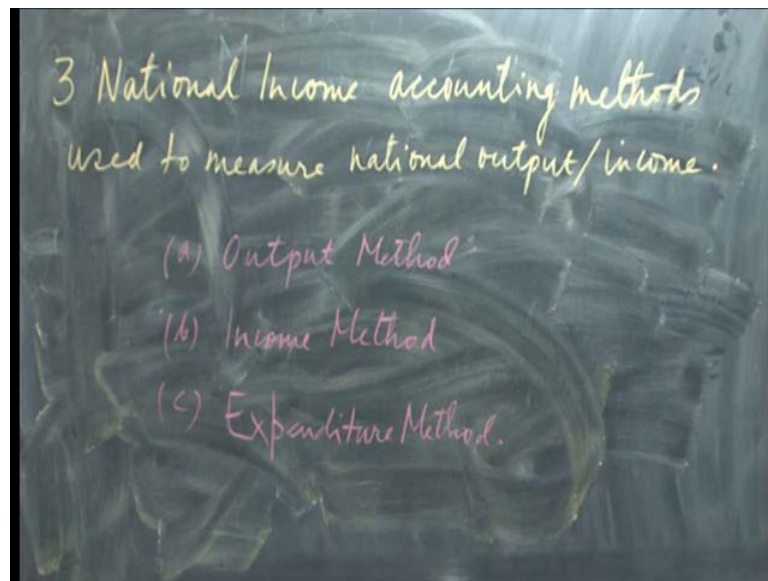 3 National Income accounting methods
used to measure national output/income.
(a) Output Method
(b) Income Method
(c) Expenditure Method.